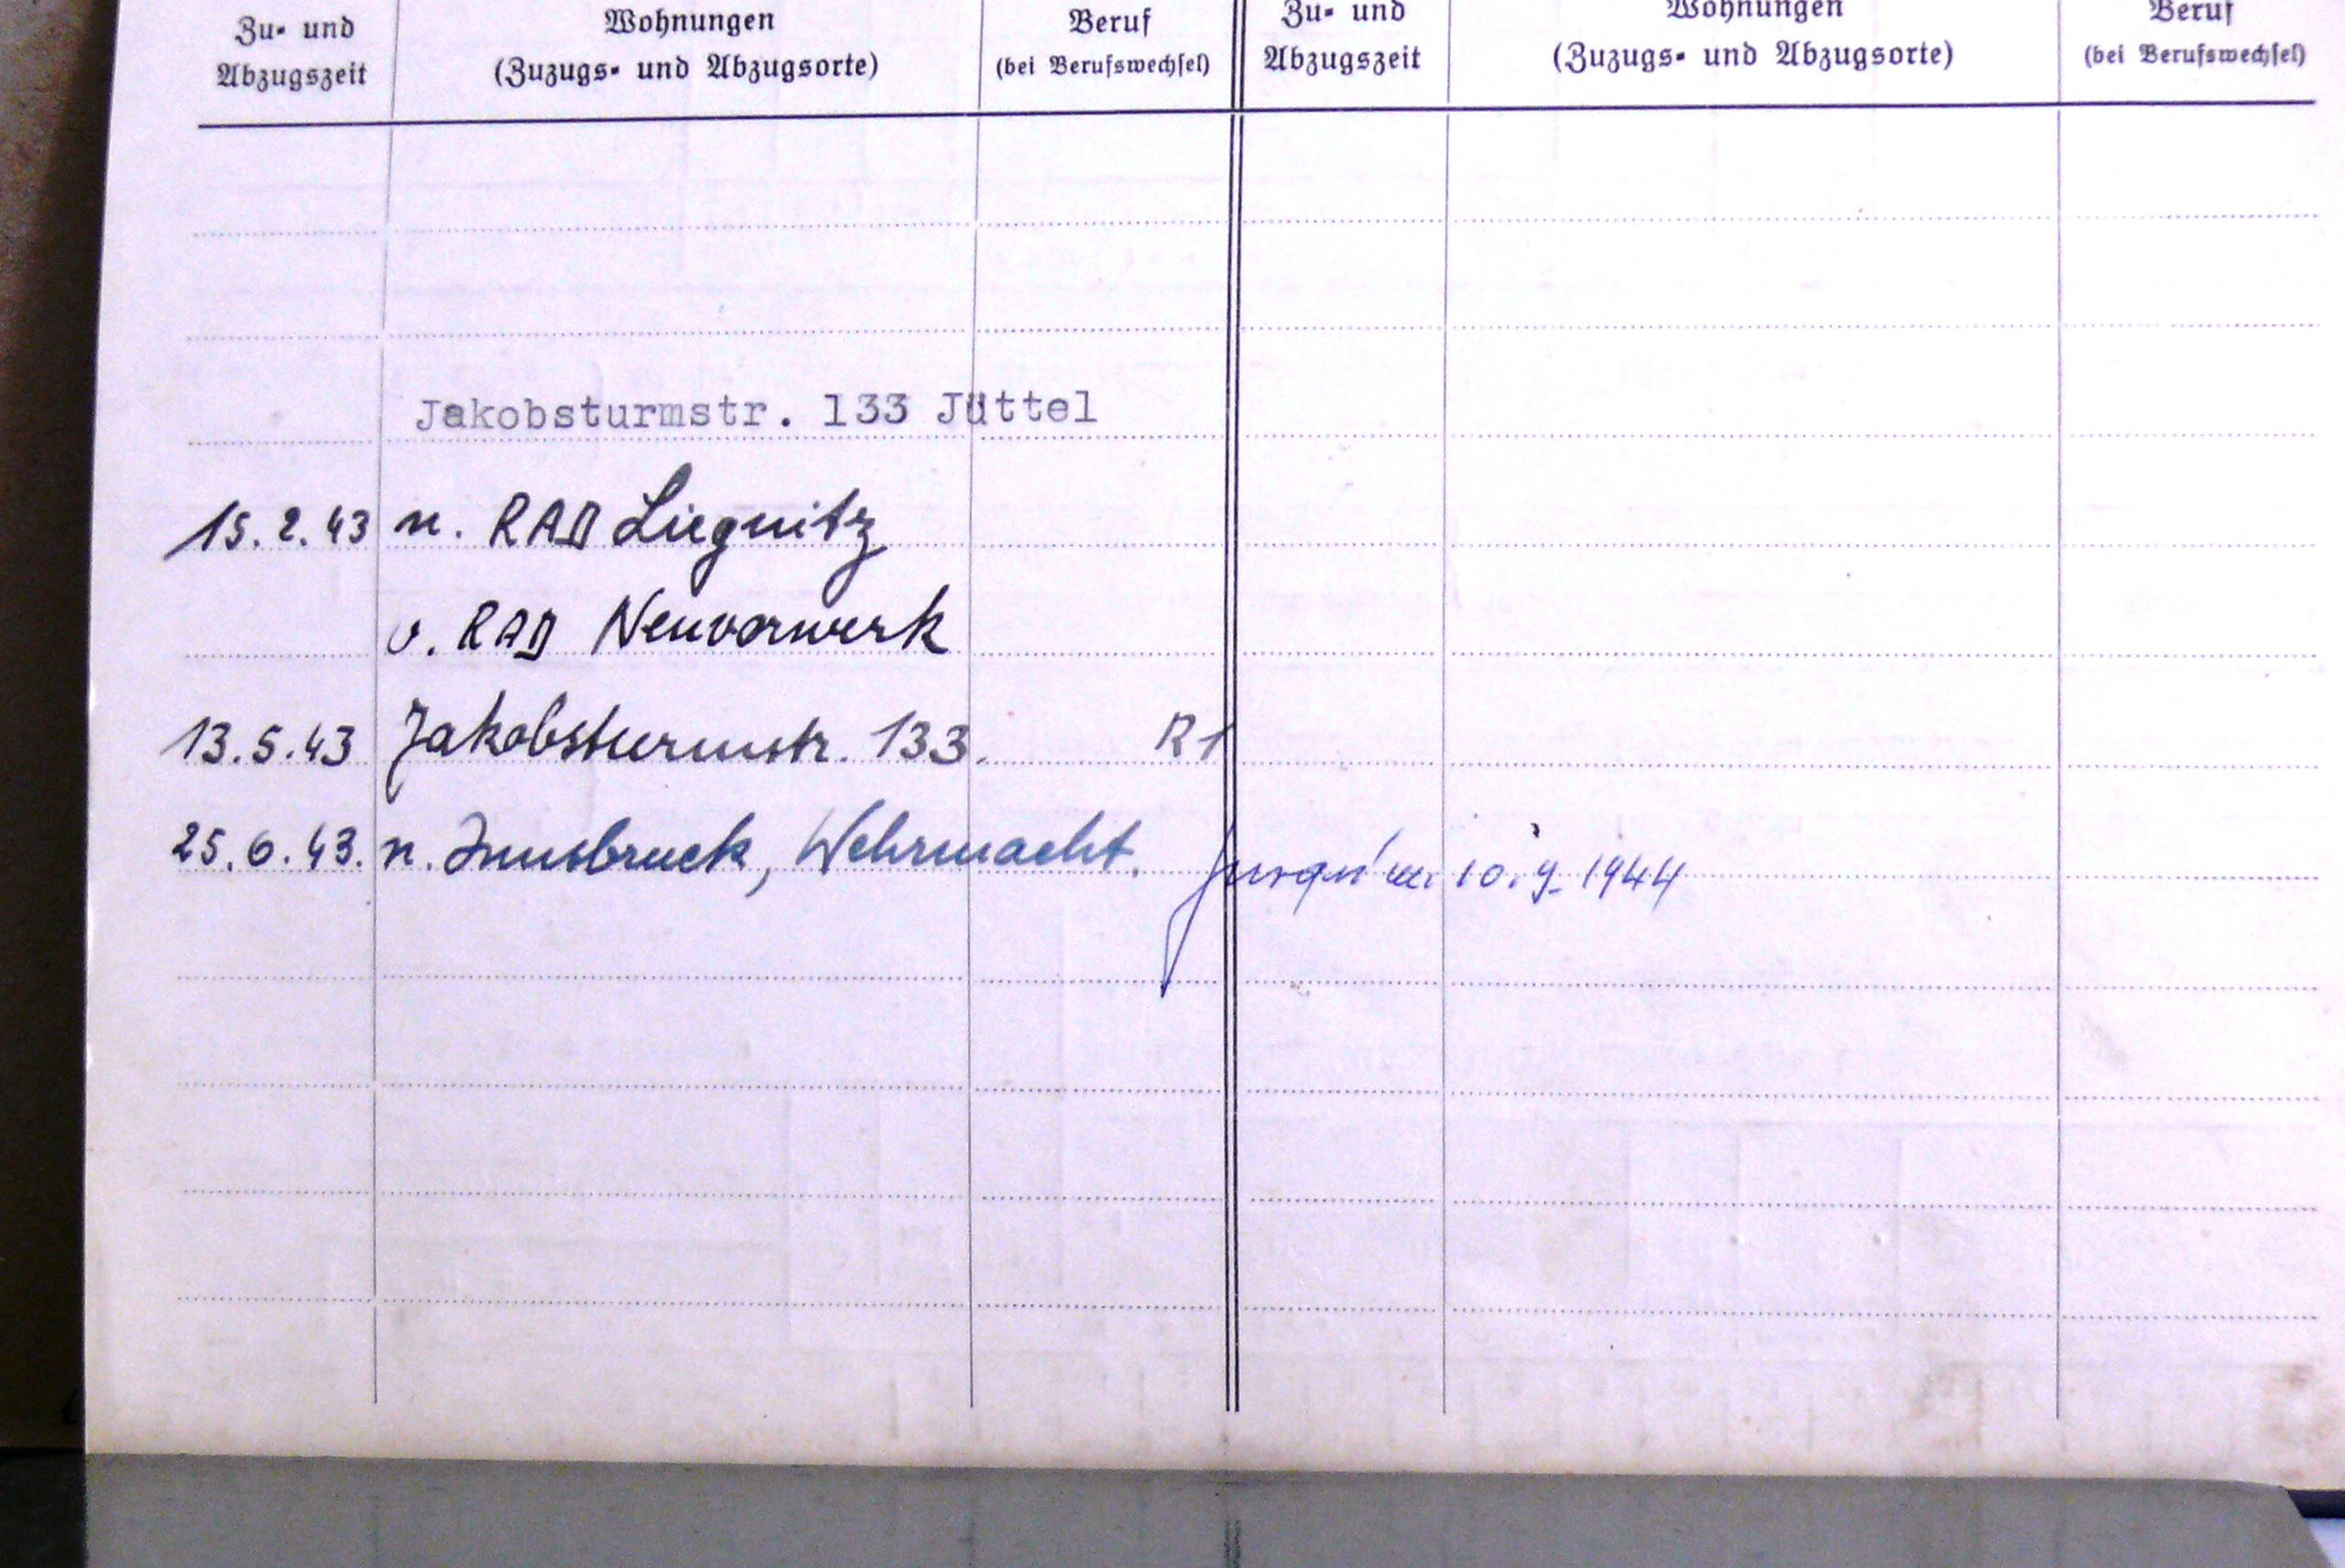 Zu- und Abzugszeit
Wohnungen (Zuzugs- und Abzugsorte)
Beruf (bei Berufswechsel)
Zu- und Abzugszeit
Wohnungen (Zuzugs- und Abzugsorte)
Beruf (bei Berufswechsel)
Jakobsturmstr. 133 Jüttel
15.2.43 n. RAD Liegnitz
v. RAD Neuvorwerk
13.5.43 Jakobsturmstr. 133. R1
25.6.43. n. Innsbruck, Wehrmacht. jusqu'au 10.9.1944